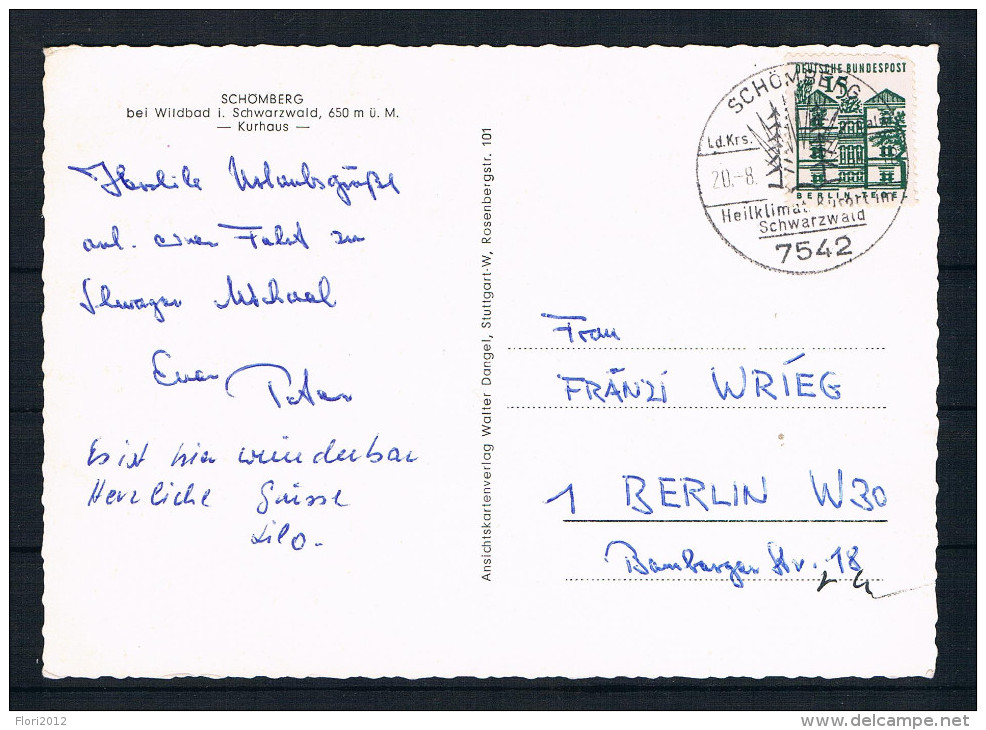 SCHÖMBERG
bei Wildbad i. Schwarzwald, 650 m ü. M.
— Kurhaus —
Herzliche Urlaubsgrüße
auf einer Fahrt zu
Schwager Michael
Euer Peter
Es ist hier wunderbar
Herzliche Grüsse
Lilo.
Ansichtskartenverlag Walter Dangel, Stuttgart-W, Rosenbergstr. 101
DEUTSCHE BUNDESPOST
15
BERLIN-TEGEL
SCHÖMBERG
Ld.Krs.
20.-8.
Heilklimat. Kurort im
Schwarzwald
7542
Frau
FRÄNZI WRIEG
1 BERLIN W30
Bamberger Str. 18
Flori2012
www.delcampe.net